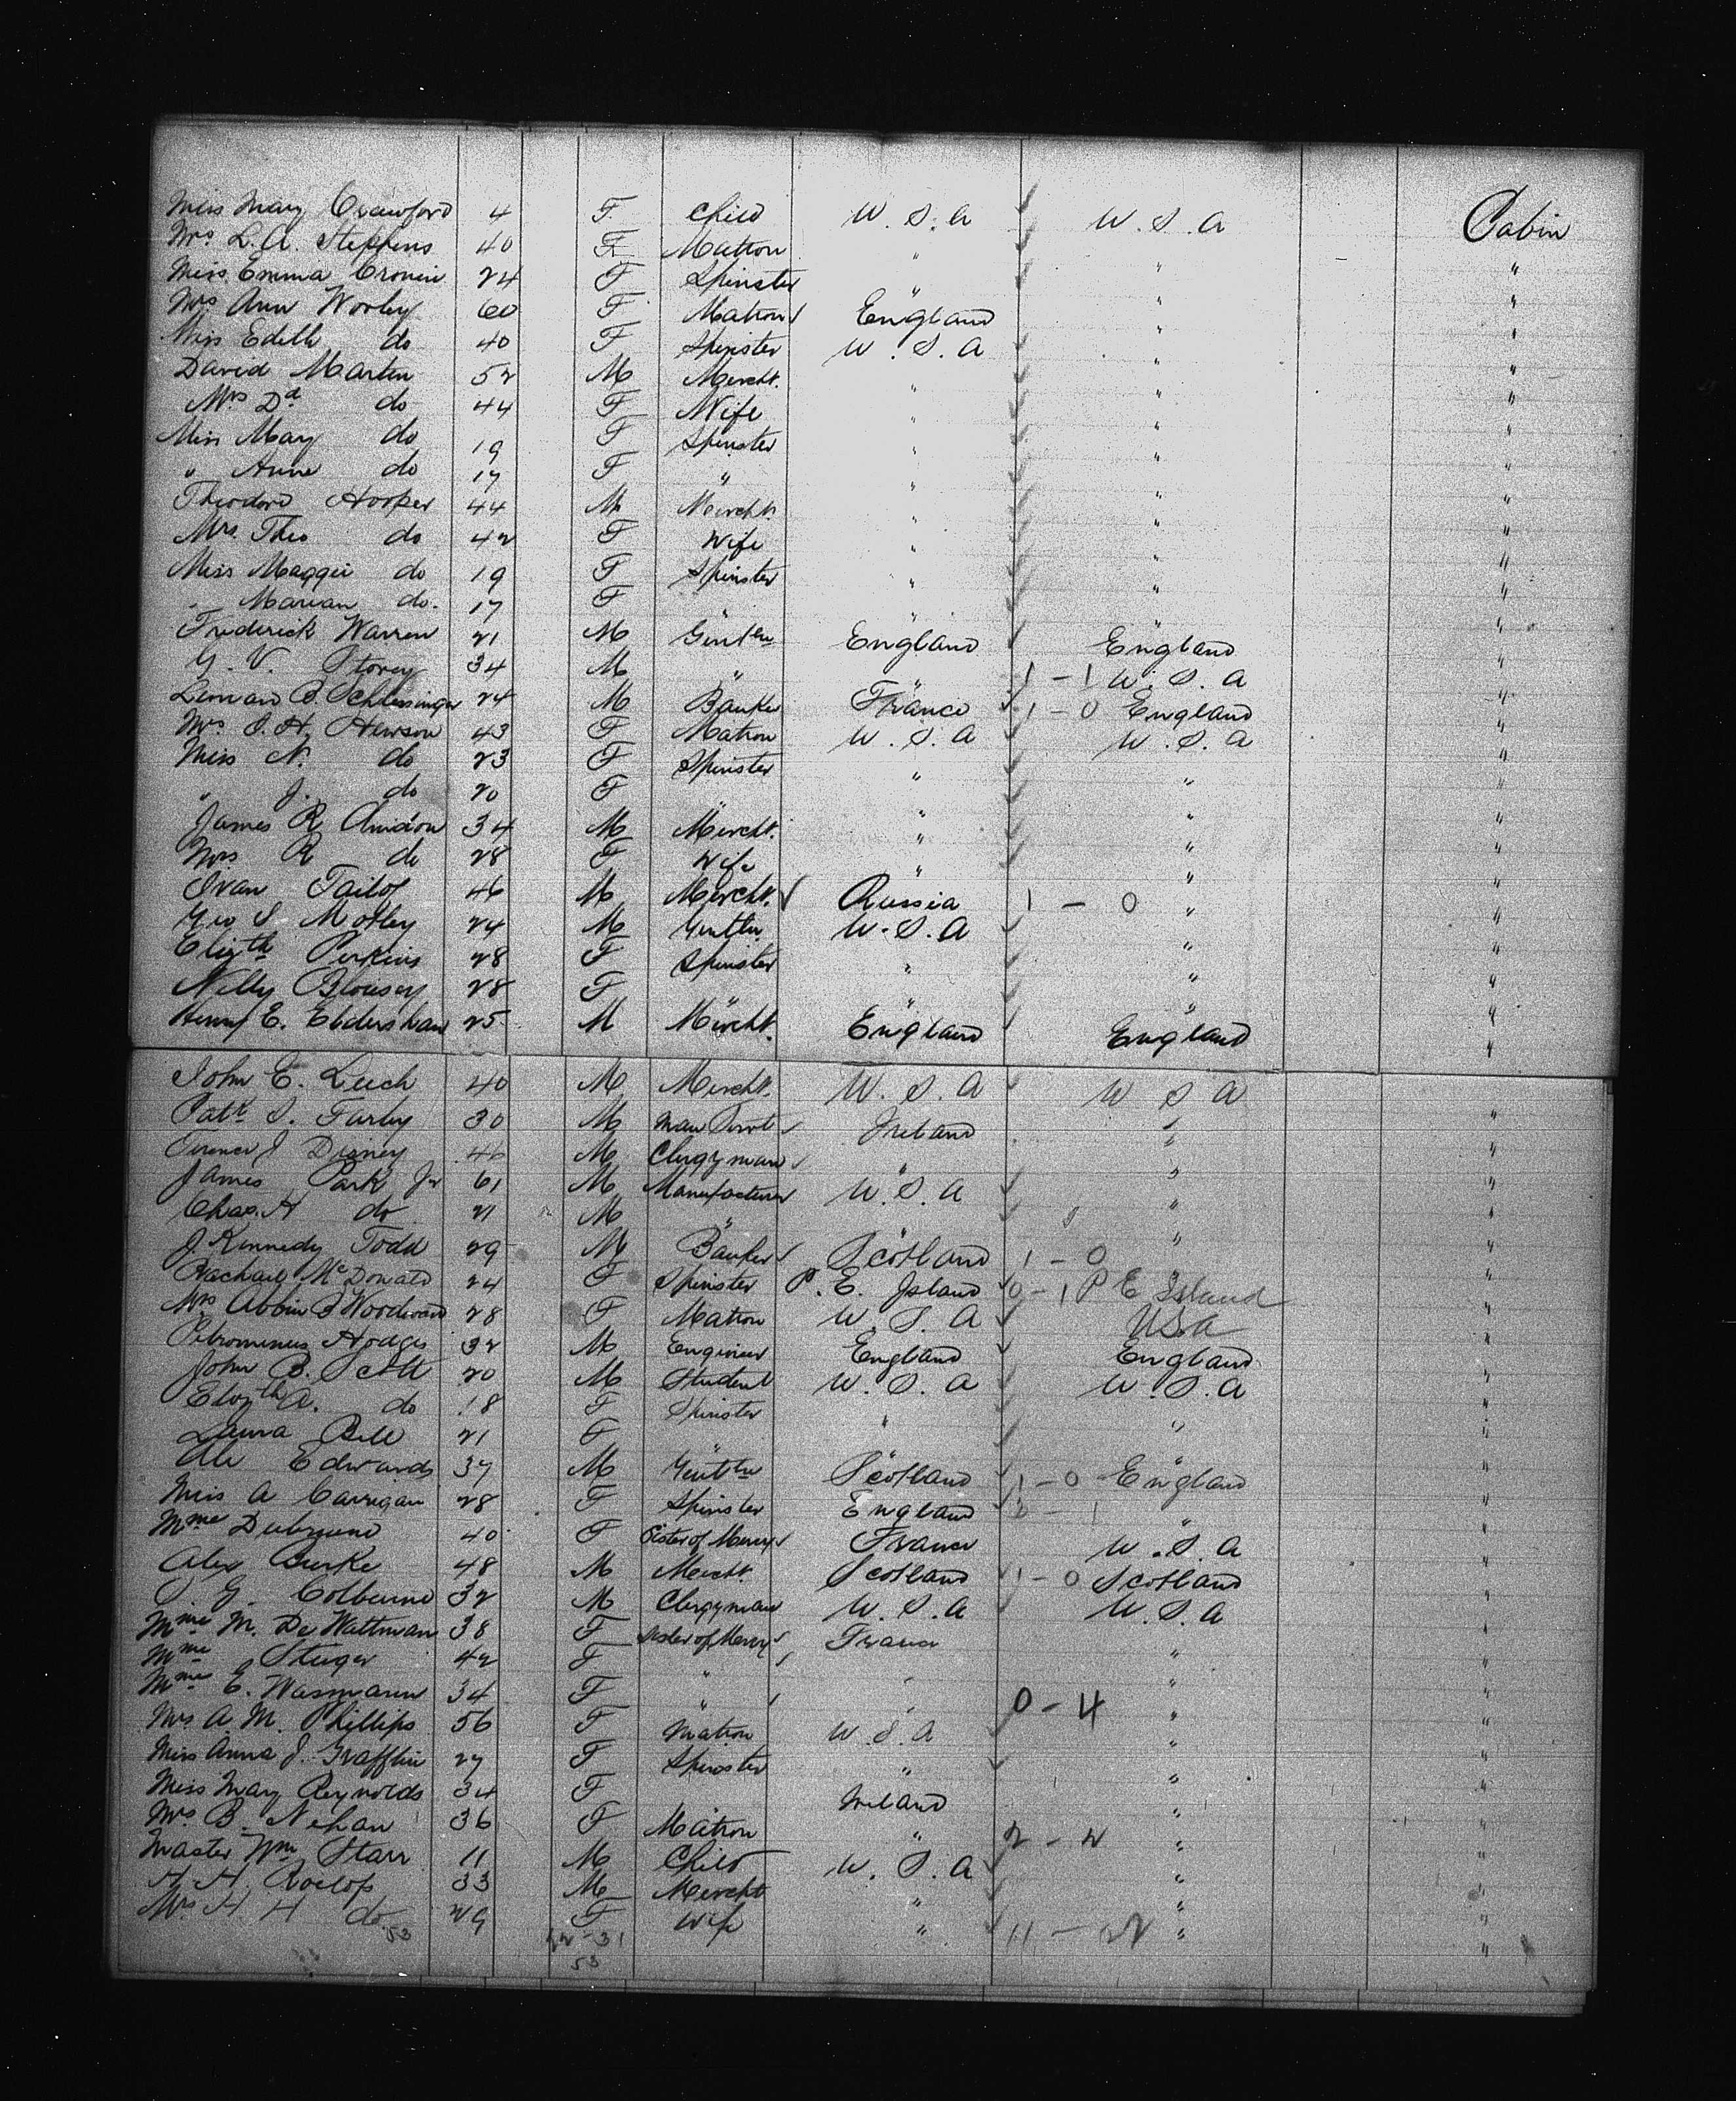 Miss Mary Crawford 4 F Child U.S.A U.S.A Cabin
Mrs L.A. Steffens 40 F Matron " " "
Miss Emma Cronin 24 F Spinster " " "
Mrs Ann Worley 60 F Matron England " "
Miss Edith do 40 F Spinster U.S.A " "
David Marten 52 M Mercht. " " "
Mrs Dd do 44 F Wife " " "
Miss May do 19 F Spinster " " "
" Anne do 17 F " " " "
Theodore Hooper 44 M Mercht. " " "
Mrs Theo do 42 F Wife " " "
Miss Maggie do 19 F Spinster " " "
" Marian do. 17 F " " " "
Frederick Warren 21 M Gentln England England "
G. V. Storey 34 M " " 1 - 1 U.S.A "
B. Schlessinger 24 M Banker France 1 - 0 England "
Mrs J.H. Hewson 43 F Matron U.S.A U.S.A "
Miss N. do 23 F Spinster " " "
" J. do 20 F " " " "
James R Amidon 34 M Mercht. " " "
Mrs R do 28 F Wife " " "
Ivan 46 M Mercht. Russia 1 - 0 " "
Geo S Motley 24 M Gentln U.S.A " "
Elizth Perkins 28 F Spinster " " "
Nelly 28 F " " " "
Henry E. Eldershaw 25 M Mercht. England England "
John E. Leech 40 M Mercht. U.S.A U S A
Patk S. Farley 30 M Man Servt Ireland " "
J Disney 46 M Clergyman " " "
James Park Jr 61 M Manufacturer U.S.A " "
Chas. H do 21 M " " " "
J. Kennedy Todd 29 M Banker Scotland 1 - 0 " "
Rachael McDonald 24 F Spinster P.E. Island 0 - 1 P E Island "
Mrs Abbie J Woodward 28 F Matron U.S.A USA "
Hodges 32 M Engineer England England "
John B. Scott 20 M Student U.S.A U.S.A "
Elizth A. do 18 F Spinster " " "
Laura Bell 21 F " " " "
Edwards 37 M Gentln Scotland 1 - 0 England "
Miss A Carrigan 28 F Spinster England 3 - 1 " "
Mme 40 F Sister of Mercy France U.S.A "
Alex Burke 48 M Mercht. Scotland 1 - 0 Scotland "
J. G. Colburne 32 M Clergyman U.S.A U.S.A "
Mme M. De Wattman 38 F Sister of Mercy France " "
Mme Steiger 42 F " " " "
Mme E. Wasmann 34 F " " 0 - 4 " "
Mrs A.M. Phillips 56 F Matron U.S.A " "
Miss Anna J. Grafflin 27 F Spinster " " "
Miss May Reynolds 34 F " Ireland " "
Mrs B. Nehan 36 F Matron " 2 - 2 " "
Master Wm Starr 11 M Child U.S.A " "
H H. 33 M Mercht " " "
Mrs H H do 29 F Wife " 11 - 22 " "
53 22 - 31
53